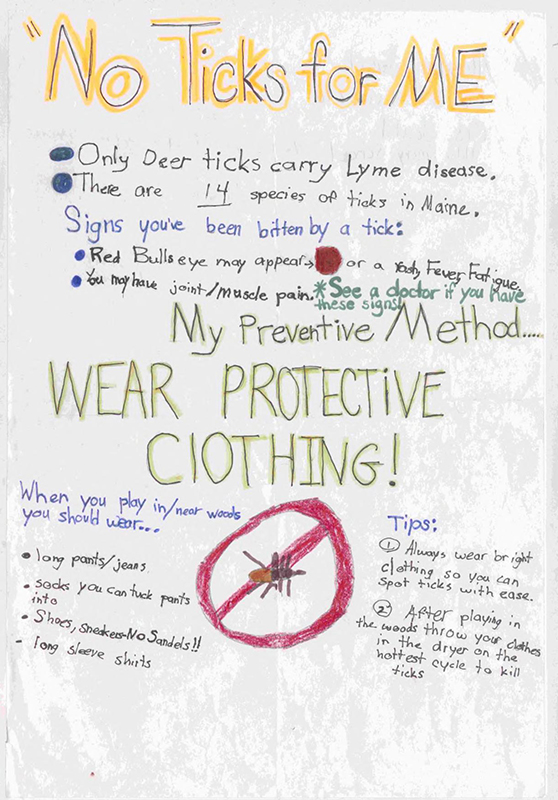 "No Ticks for ME"
Only Deer ticks carry Lyme disease.
There are 14 species of ticks in Maine.
Signs you've been bitten by a tick:
Red Bullseye may appear→ or a rash, Fever, Fatigue.
You may have joint/muscle pain. *See a doctor if you have
these signs!
My Preventive Method....
WEAR PROTECTIVE
ClOTHING!
When you play in/near woods
you should wear...
long pants/jeans
socks you can tuck pants
into
Shoes, sneakers-No Sandels!!
- long sleeve shirts
Tips:
① Always wear bright
clothing so you can
spot ticks with ease.
② After playing in
the woods throw your clothes
in the dryer on the
hottest cycle to kill
ticks